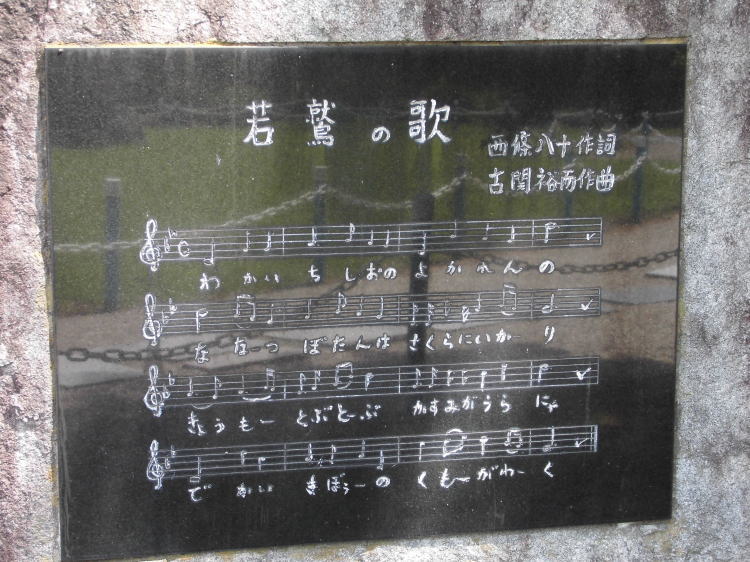 若鷲の歌
西條八十作詞
古関裕而作曲
わかいちしおのよかれんの
ななーつぼたんはさくらにいかーり
きょうもーとぶとーぶかすみがうらにゃ
でかいきぼうーのくもーがわーく